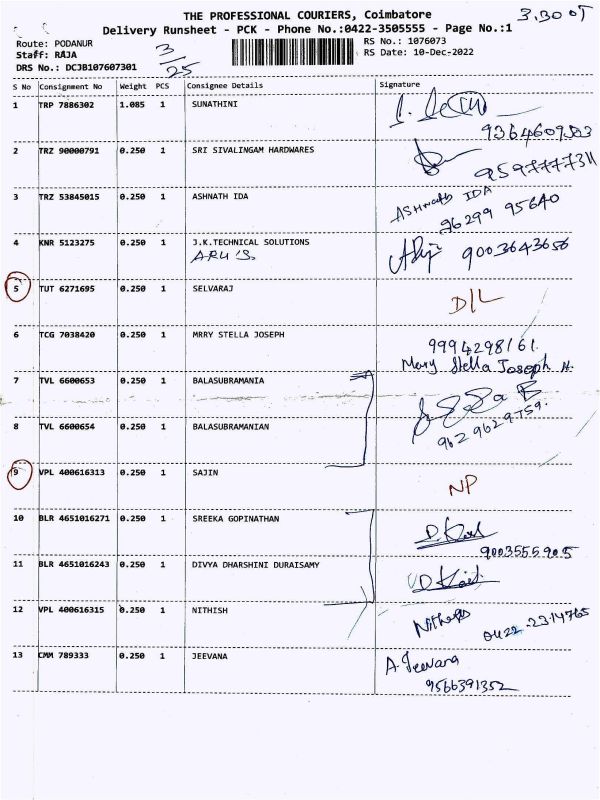 THE PROFESSIONAL COURIERS, Coimbatore
3.30
Delivery Runsheet - PCK - Phone No.:0422-3505555 - Page No.:1
Route: PODANUR
RS No.: 1076073
Staff: RAJA
RS Date: 10-Dec-2022
DRS No.: DCJB107607301
3/25
S No Consignment No Weight PCS Consignee Details Signature
1 TRP 7886302 1.085 1 SUNATHINI
2 TRZ 90000791 0.250 1 SRI SIVALINGAM HARDWARES
9597777311
3 TRZ 53845015 0.250 1 ASHNATH IDA
ASHnath IDA
96299 95640
4 KNR 5123275 0.250 1 J.K.TECHNICAL SOLUTIONS
9003643656
5 TUT 6271695 0.250 1 SELVARAJ D/L
6 TCG 7038420 0.250 1 MRRY STELLA JOSEPH
9994298161.
Mary Stella Joseph .A.
7 TVL 6600653 0.250 1 BALASUBRAMANIA
8 TVL 6600654 0.250 1 BALASUBRAMANIAN
962 9629759.
9 VPL 400616313 0.250 1 SAJIN NP
10 BLR 4651016271 0.250 1 SREEKA GOPINATHAN
9003555905
11 BLR 4651016243 0.250 1 DIVYA DHARSHINI DURAISAMY
12 VPL 400616315 0.250 1 NITHISH
0422-2314765
13 CMM 789333 0.250 1 JEEVANA
A.Jeevana
9566391352